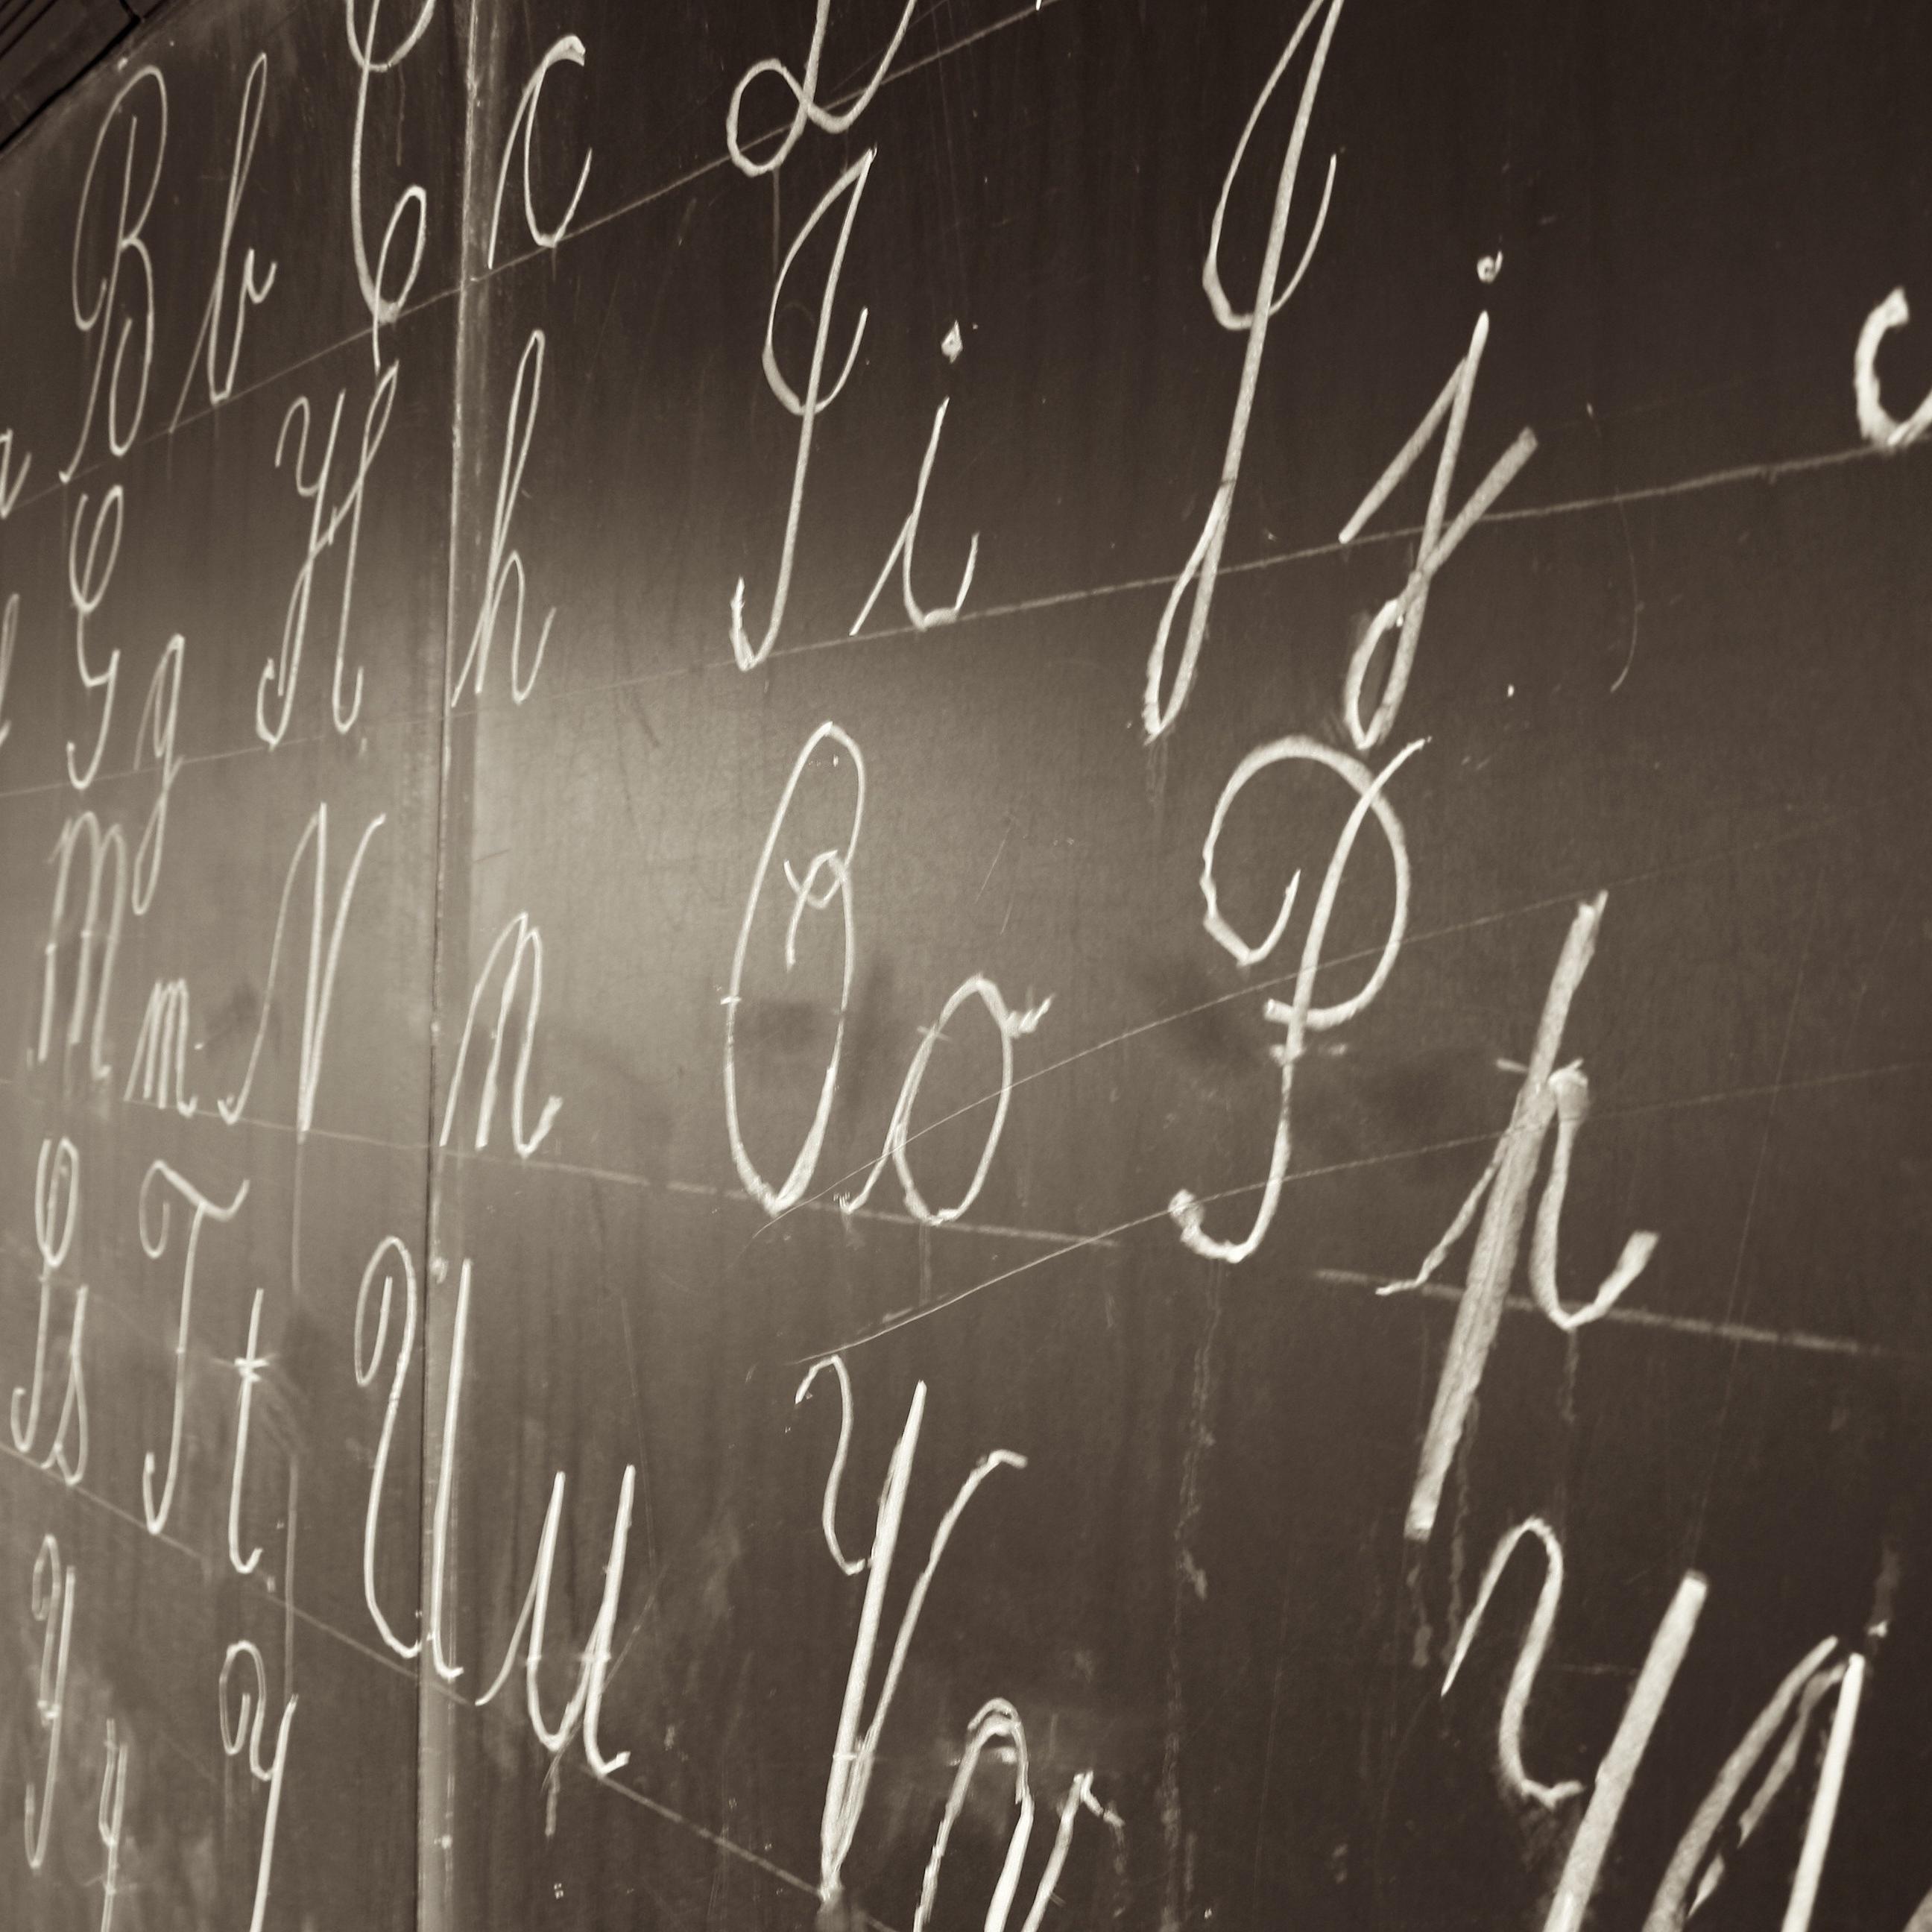 a B b C c D
f G g H h I i J j
M m N n O o P p
S s T t U u V v W
Y y